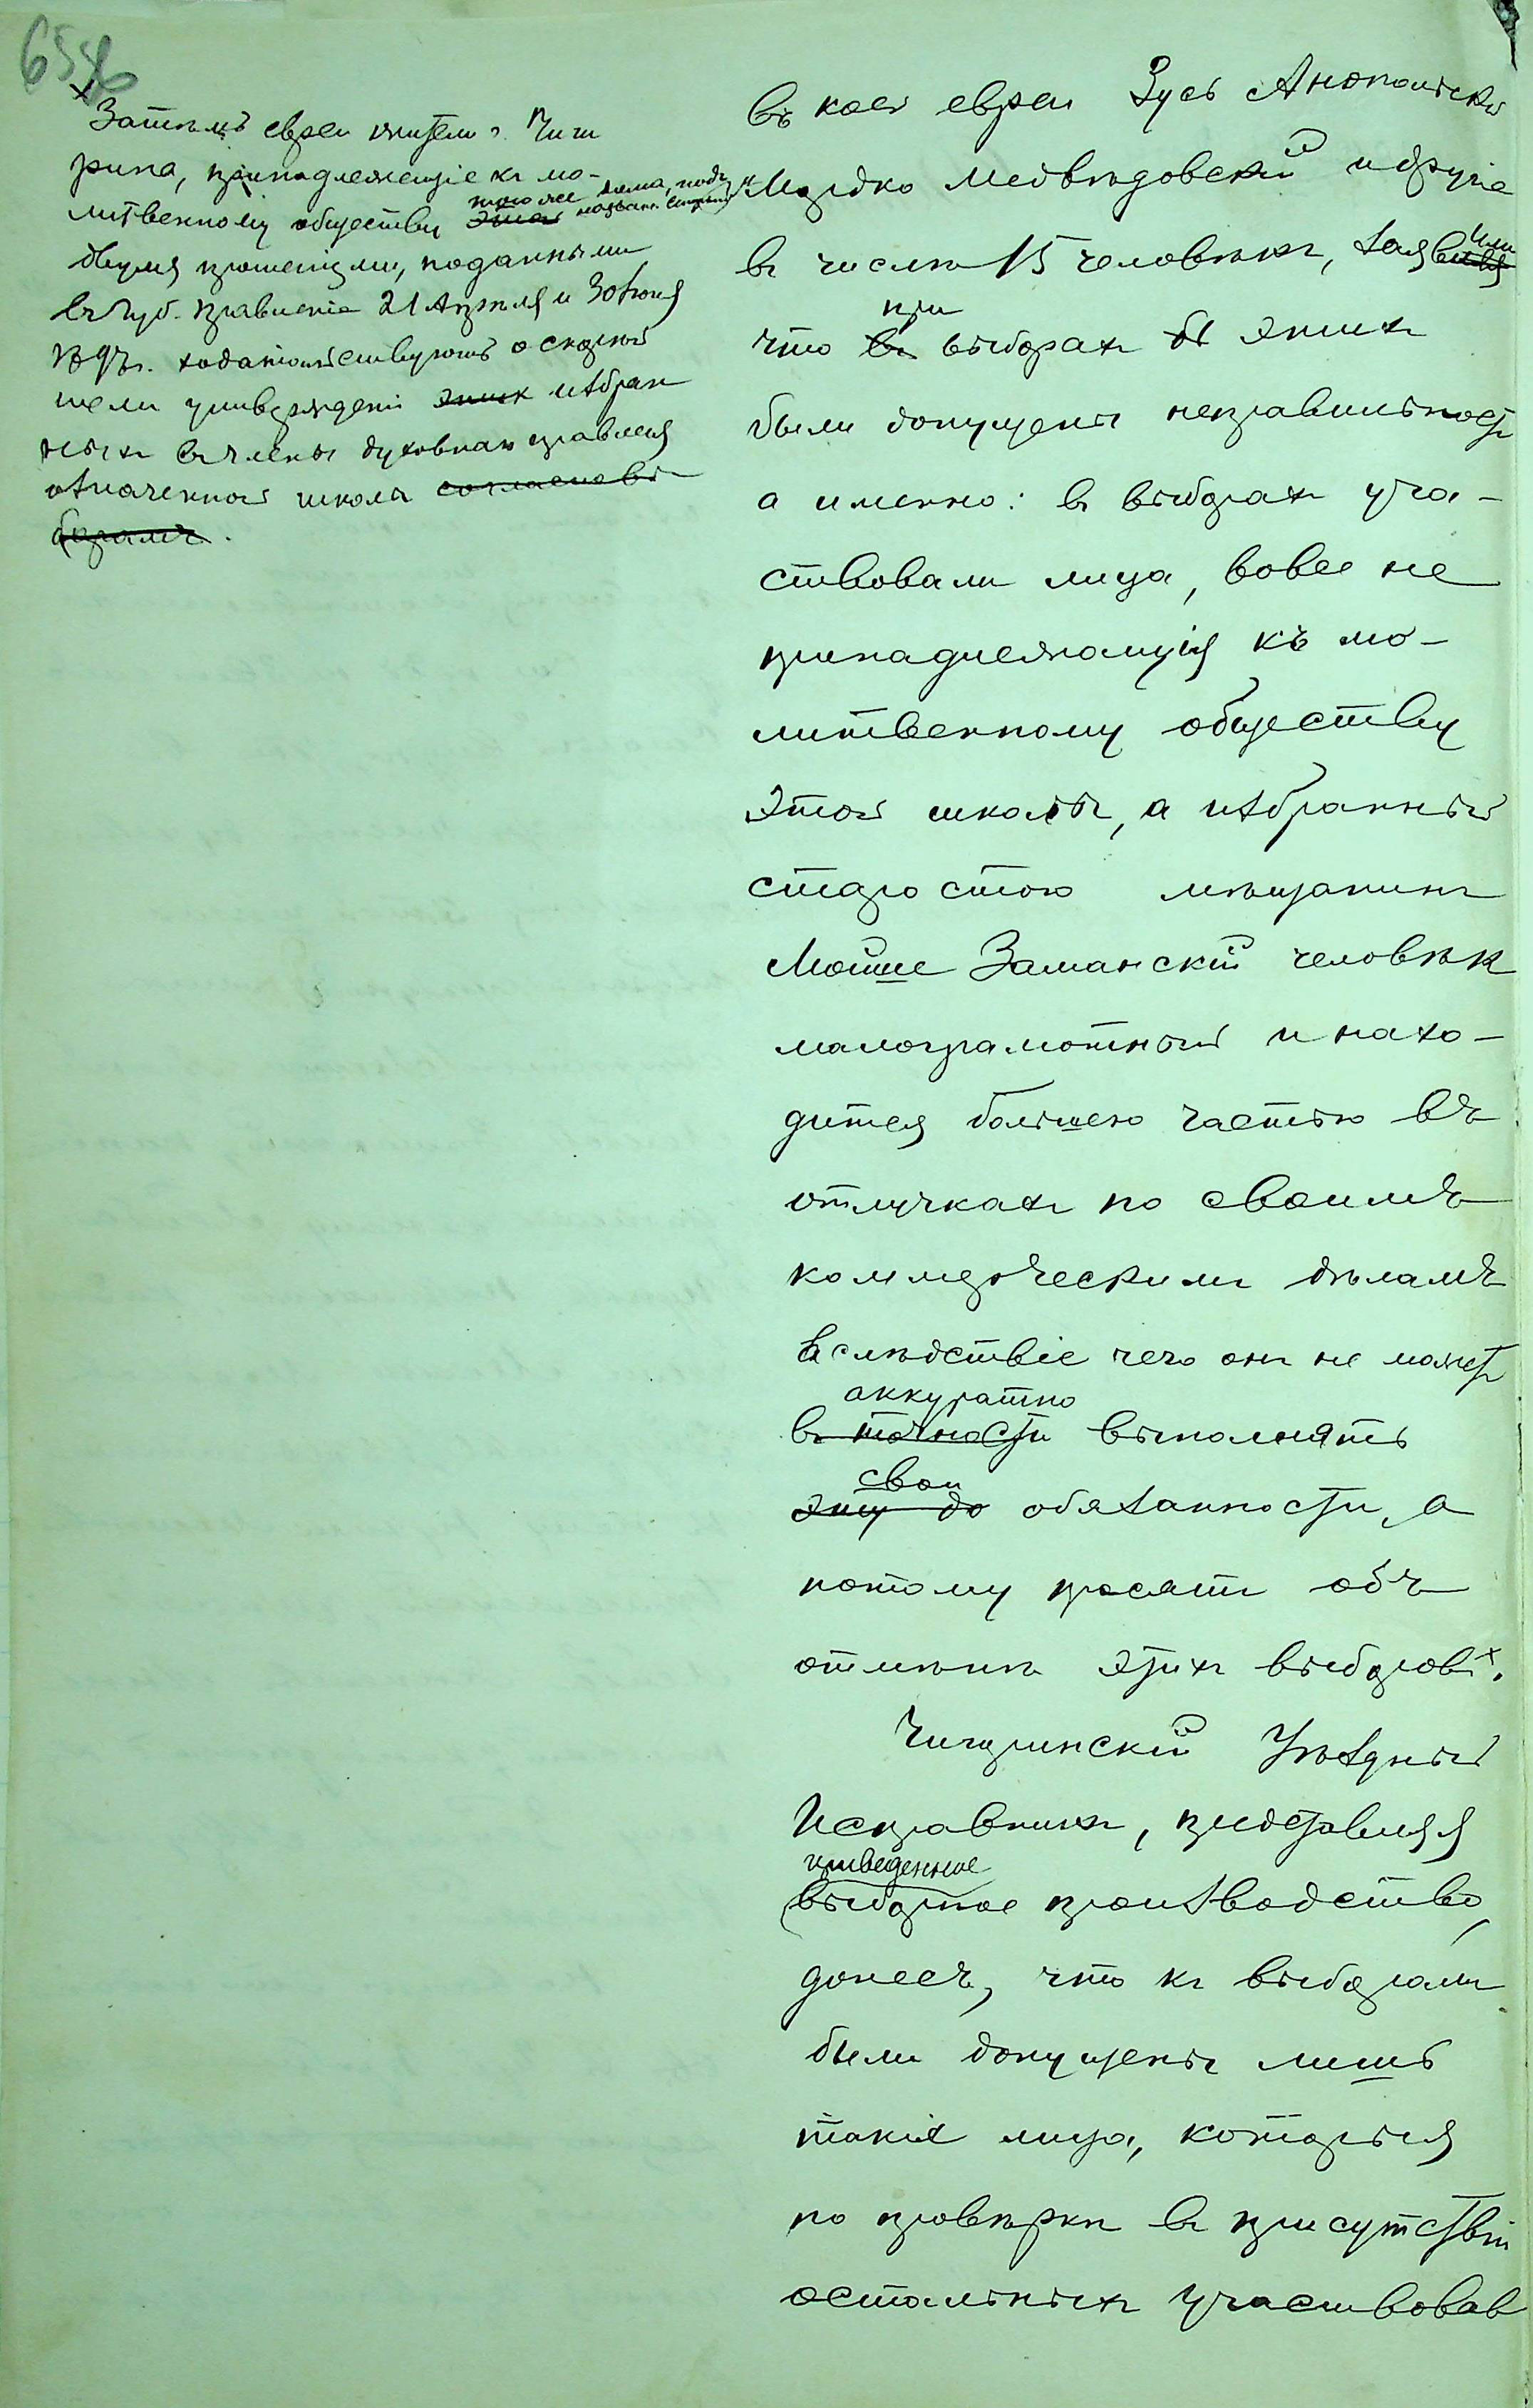 655б
× Затѣмъ евреи жители г. Чиги
рина, принадлежащіе къ мо-
литвенному обществу этой того же дома, подъ назван.
двумя прошеніями, поданными
въ Губ. правленіе 21 Апрѣля и 30 Іюня
ходатайствуютъ о скорѣй
шемъ утвержденіи этихъ избран
ныхъ въ члены духовнаго правленія
означенной школы согласно вы
борамъ.
въ коей евреи Зусь Анопольскій
Мордко Медвѣдовскій и другіе
въ числѣ 15 человѣкъ, заявили
при
что въ выборахъ этихъ
были допущены неправильности
а именно: въ выборахъ уча-
ствовали лица, вовсе не
принадлежащія къ мо-
литвенному обществу
этой школы, а избранный
старостою мѣщанинъ
Мойше Заманскій человѣкъ
малограмотный и нахо-
дится большею частью въ
отлучкахъ по своимъ
коммерческимъ дѣламъ
вслѣдствіе чего онъ не можетъ
аккуратно
въ точности выполнять
свои
эту до обязанности, а
потому просятъ объ
отмѣнѣ этихъ выборовъ ×.
Чигиринскій Уѣздный
Исправникъ, представляя
приведенное
выборное производство,
донесъ, что къ выборамъ
были допущены лишь
такія лица, которыя
по провѣркѣ въ присутствіи
остальныхъ участвовав